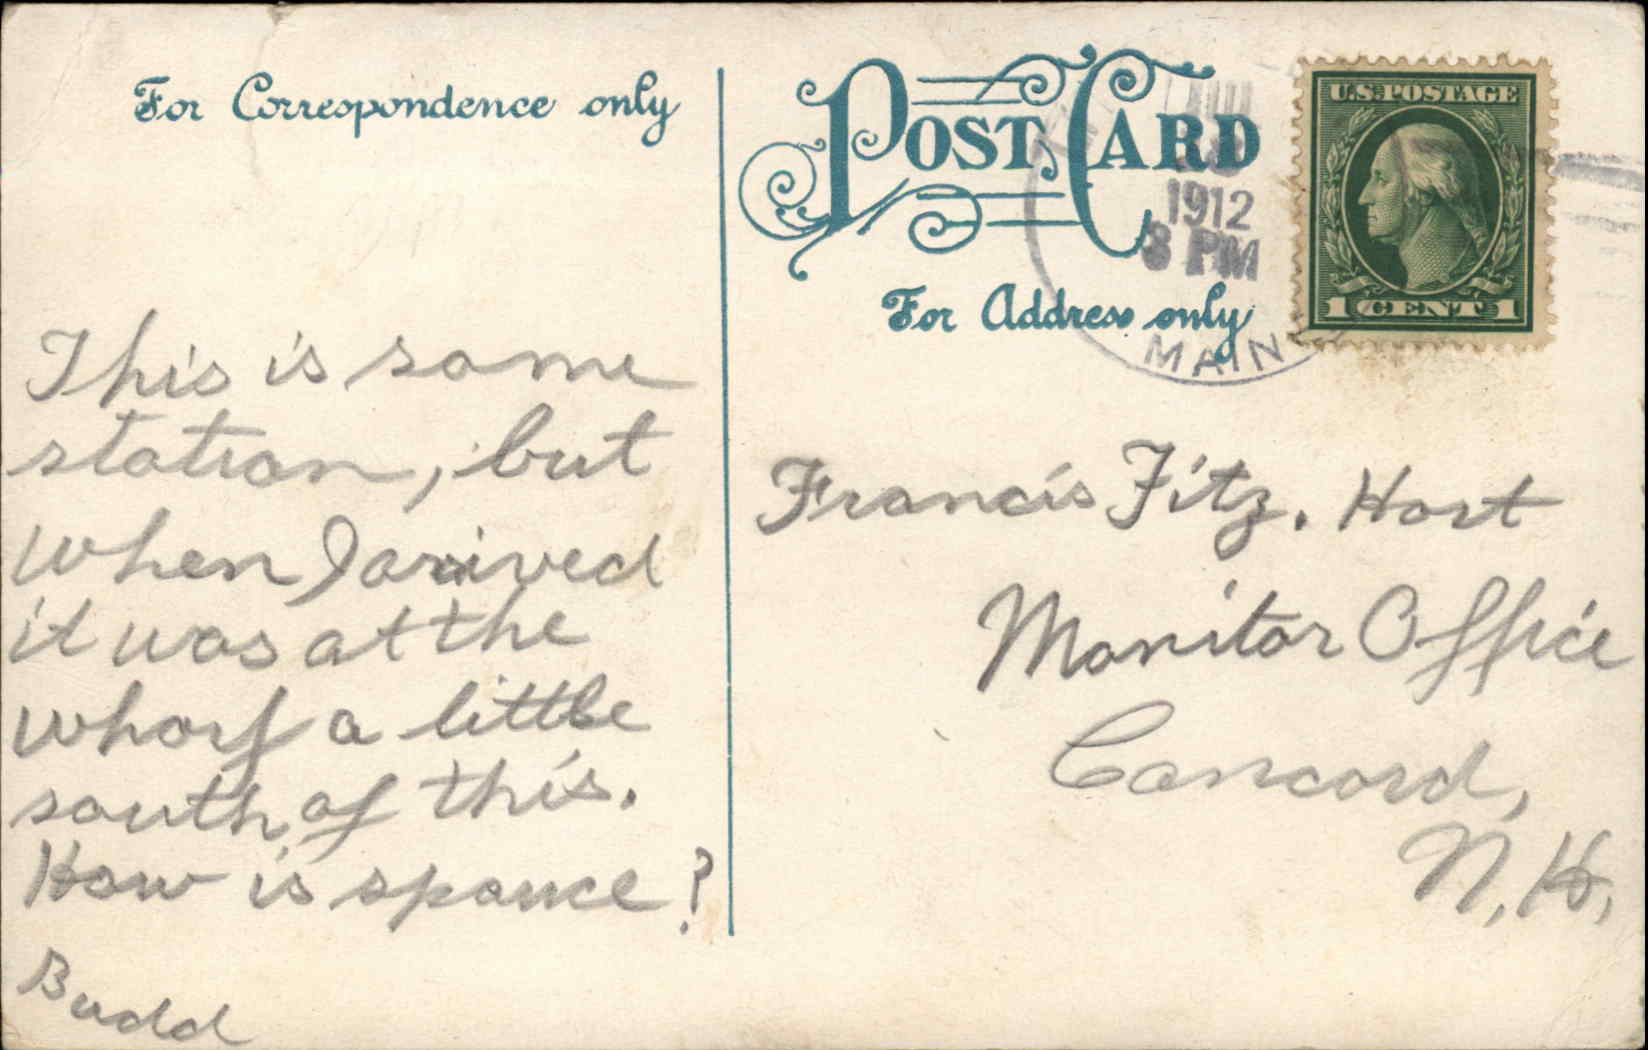 For Correspondence only
POST CARD
For Address only
U.S. POSTAGE
1 CENT 1
1912
8 PM
MAINE
This is some
station, but
when I arrived
it was at the
wharf a little
south of this.
How is spouce?
Budd
Francis Fitz. Host
Monitor Office
Concord,
N.H.